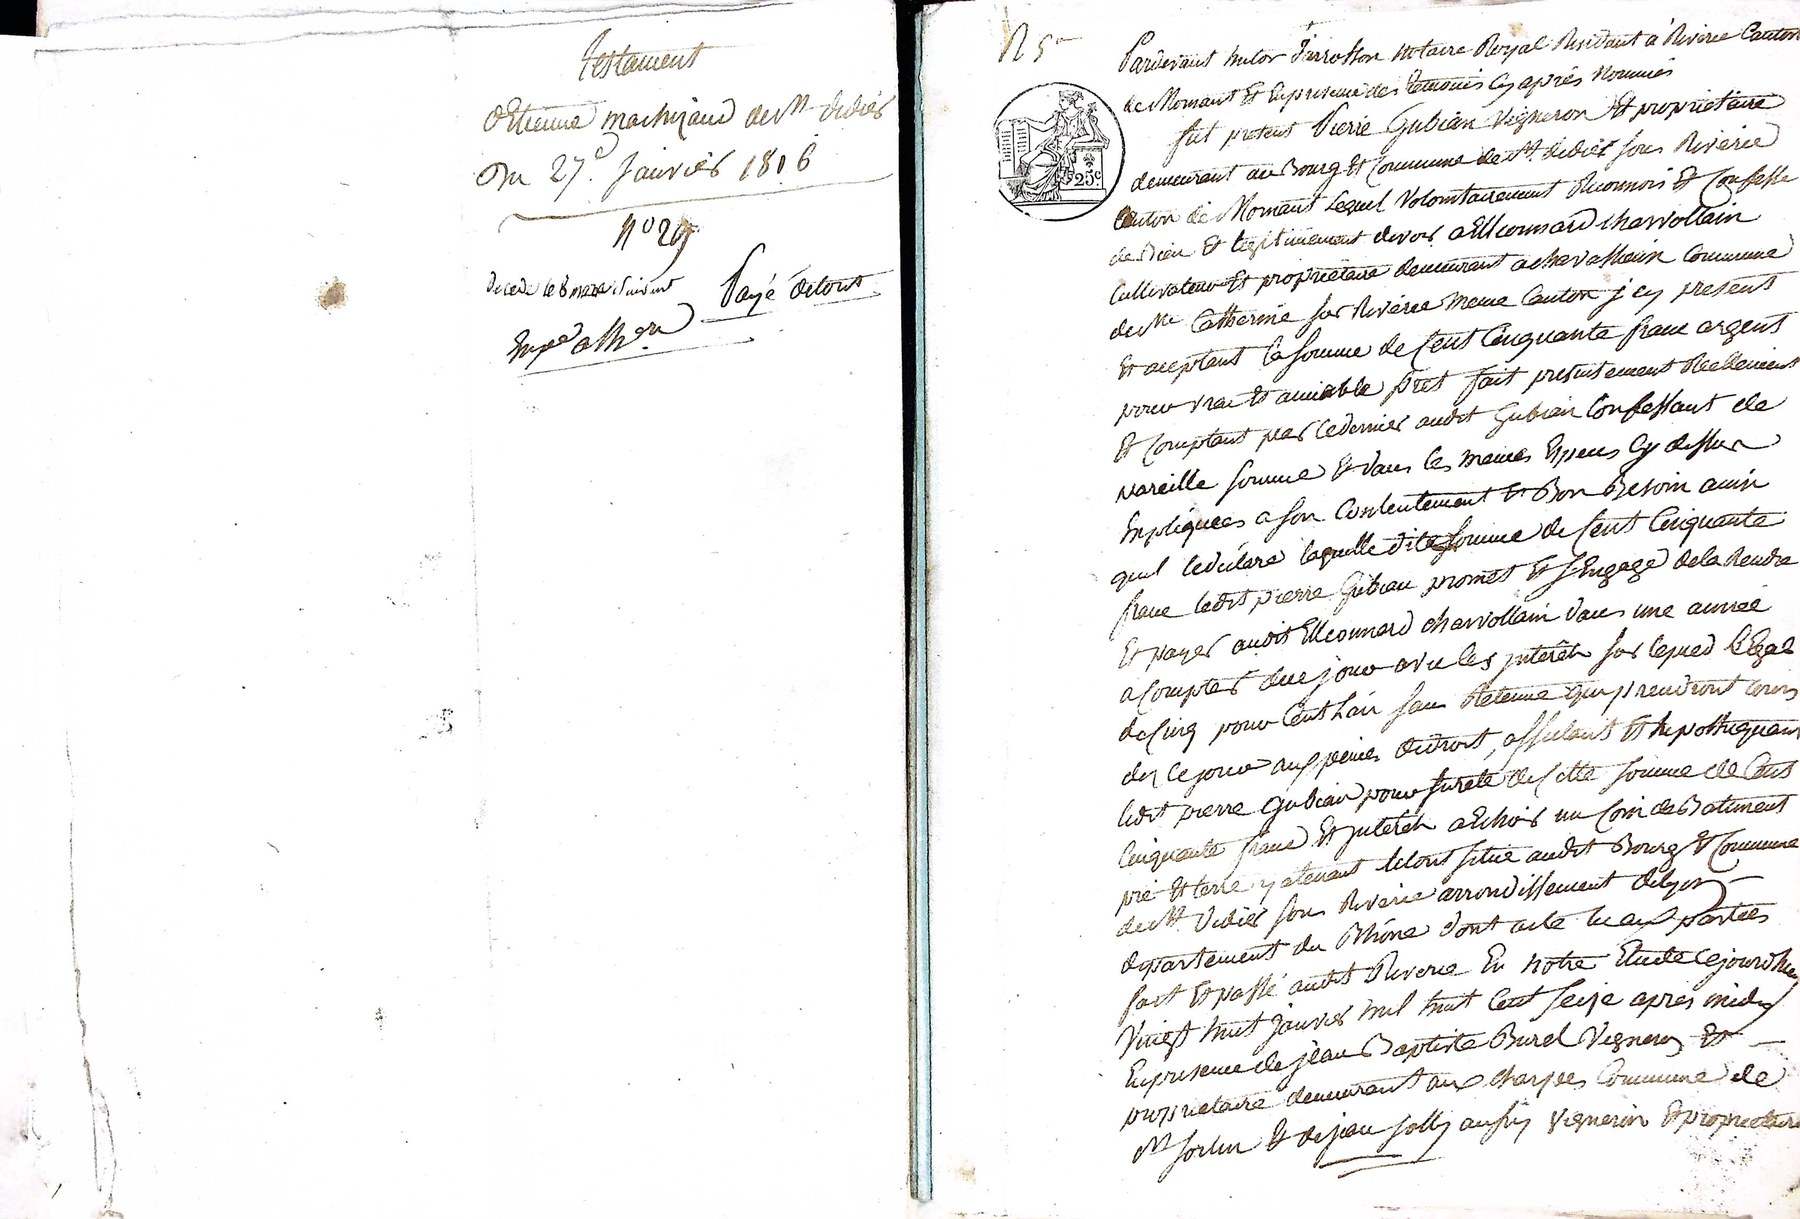 Testament
d'Etienne machizaud de St didier
Du 27e. Janvier 1816
n° 29
décédé le 8 mars suivant
Payé de tout
N 5
25c
Pardevant Me Jarrosson Notaire Royal Residant à Riverie Canton
de Mornant Et En presence des temoins Cy après Nommés
fut present Pierre Gubian Vigneron Et proprietaire
demeurant au Bourg Et Commune de St. didier sous Riverie
Canton de Mornant Lequel Volontairement Reconnois Et Confesse
de Bien Et legitimement devoir a Elleonnard charvollain
Cultivateur Et proprietaire demeurant a chavassieux Commune
de Ste Catherine sur Riverie meme Canton j cy present
Et aceptant la somme de Cent Cinquante franc argent
pour vrai Et amiable prêt fait presentement Réellement
Et Comptant par Ce dernier audit Gubian Confessant de
pareille somme Et dans les memes Espeses Cy dessus
Expliquées a son Contentement Et Bon Besoin ainsi
quil le déclare laquelle dite somme de Cent Cinquante
franc ledit pierre Gubian promet Et s'Engage de la Rendre
Et payer audit Elleonnard charvollain dans une année
a Compter de ce jour avec les jnterêts sur le pied L'Egal
de Cinq pour Cent L'an sans Retenue qui prendront cours
des Ce jour aux peines de droit, assurant Et hipothequant
ledit pierre Gubian pour sureté de Cette somme de Cent
Cinquante franc Et jnterêts a Echoir un Coin de Batiment
pré Et terre y atenant le tout situé audit Bourg Et Commune
de St. didier sous Riverie arrondissement de Lyon
departement du Rhône dont acte lu aux parties
fait Et passé audit Riverie En notre Etude Cejourd'hui
Vingt huit janvier mil huit Cent seize après midy
En presence de jean Baptiste Burel Vigneron Et
proprietaire demeurant aux charpes Commune de
St Sorlin Et de jean Jolly aussy Vigneron Et proprietaire